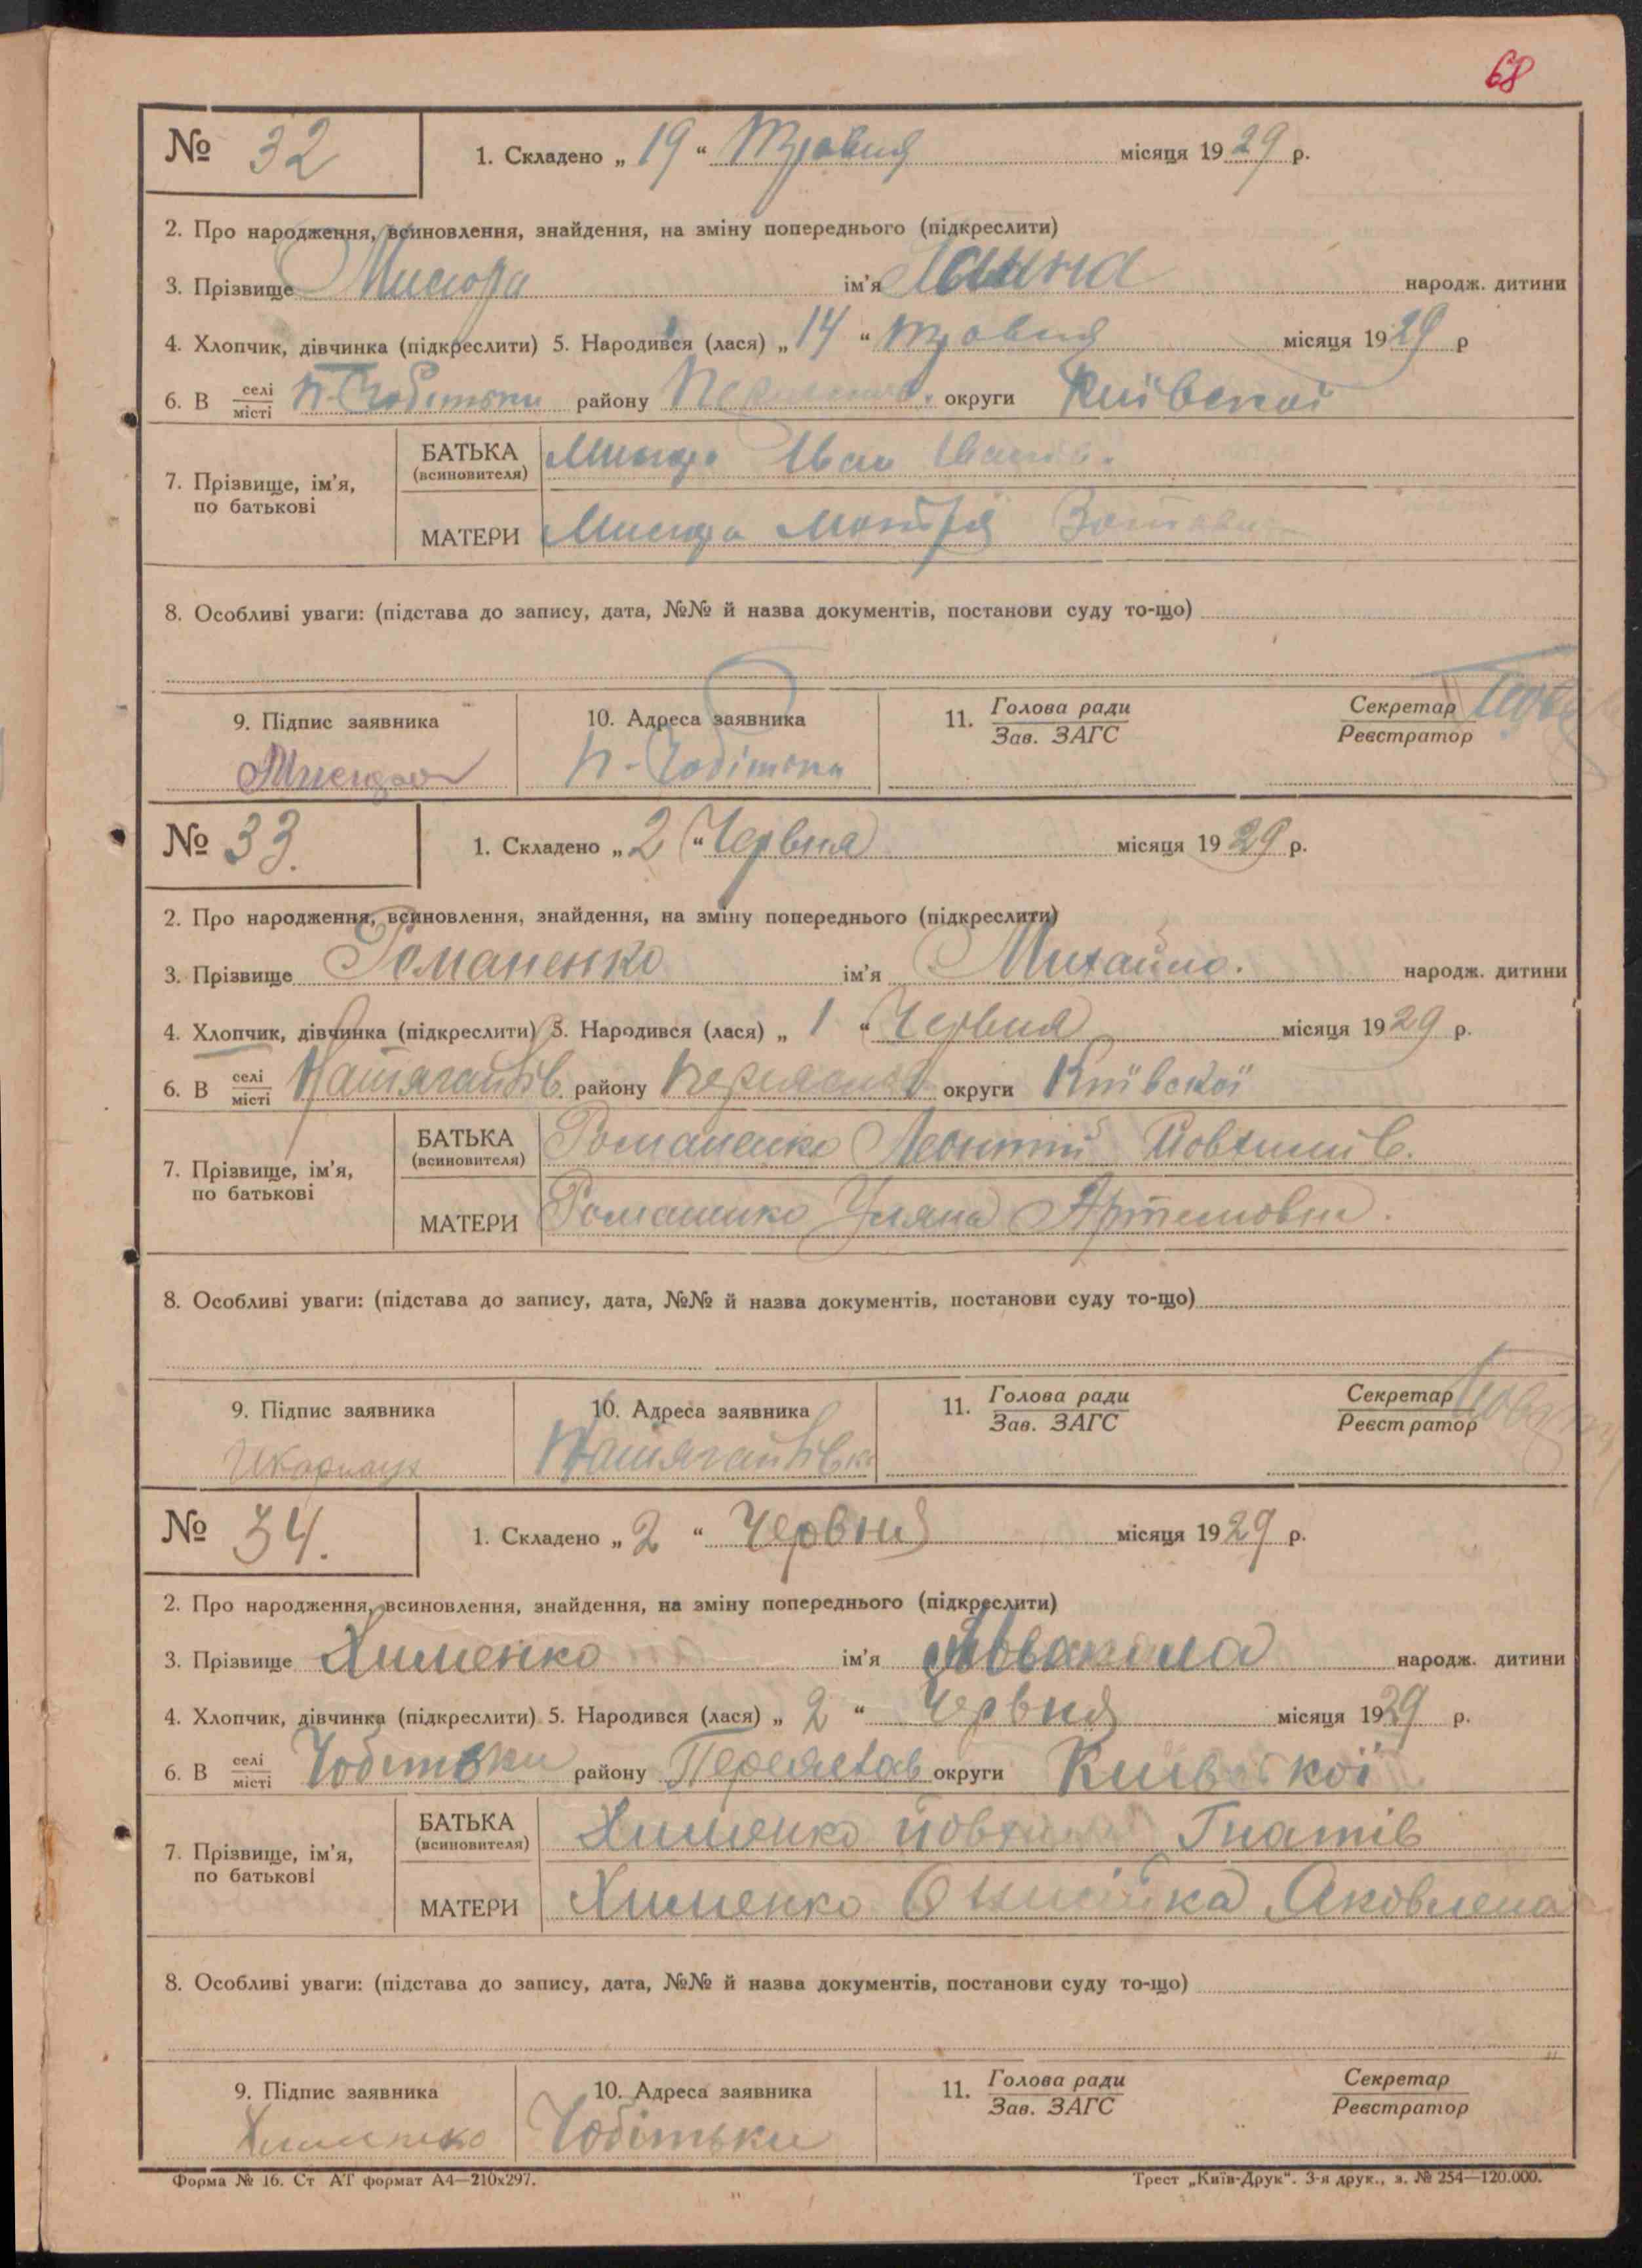 68
№ 32 1. Складено „ 19 “ Травня місяця 1929 р.
2. Про народження, всиновлення, знайдення, на зміну попереднього (підкреслити)
3. Прізвище Мисюра ім'я народж. дитини
4. Хлопчик, дівчинка (підкреслити) 5. Народився (лася) „ 14 “ травня місяця 1929 р
6. В селі/місті району округи Київської
7. Прізвище, ім'я, по батькові
БАТЬКА (всиновителя) Мисюра Иван
МАТЕРИ Мисюра Мотря
8. Особливі уваги: (підстава до запису, дата, №№ й назва документів, постанови суду то-що)
9. Підпис заявника 10. Адреса заявника 11. Голова ради/Зав. ЗАГС Секретар/Реєстратор
№ 33. 1. Складено „ 2 “ Червня місяця 1929 р.
2. Про народження, всиновлення, знайдення, на зміну попереднього (підкреслити)
3. Прізвище Романенко ім'я Михайло. народж. дитини
4. Хлопчик, дівчинка (підкреслити) 5. Народився (лася) „ 1 “ Червня місяця 1929 р.
6. В селі/місті району округи Київської
7. Прізвище, ім'я, по батькові
БАТЬКА (всиновителя) Романенко Леонтій Йовхимів.
МАТЕРИ Романенко Уляна Артемовна.
8. Особливі уваги: (підстава до запису, дата, №№ й назва документів, постанови суду то-що)
9. Підпис заявника 10. Адреса заявника 11. Голова ради/Зав. ЗАГС Секретар/Реєстратор
№ 34. 1. Складено „ 2 “ Червня місяця 1929 р.
2. Про народження, всиновлення, знайдення, на зміну попереднього (підкреслити)
3. Прізвище Хименко ім'я народж. дитини
4. Хлопчик, дівчинка (підкреслити) 5. Народився (лася) „ 2 “ Червня місяця 1929 р.
6. В селі/місті Чобітьки району Переяслав округи Київської
7. Прізвище, ім'я, по батькові
БАТЬКА (всиновителя) Хименко Гнатів
МАТЕРИ Хименко Яковлена
8. Особливі уваги: (підстава до запису, дата, №№ й назва документів, постанови суду то-що)
9. Підпис заявника 10. Адреса заявника 11. Голова ради/Зав. ЗАГС Секретар/Реєстратор
Хименко Чобітьки
Форма № 16. Ст АТ формат А4—210х297. Трест „Київ-Друк“. 3-я друк., з. № 254—120.000.